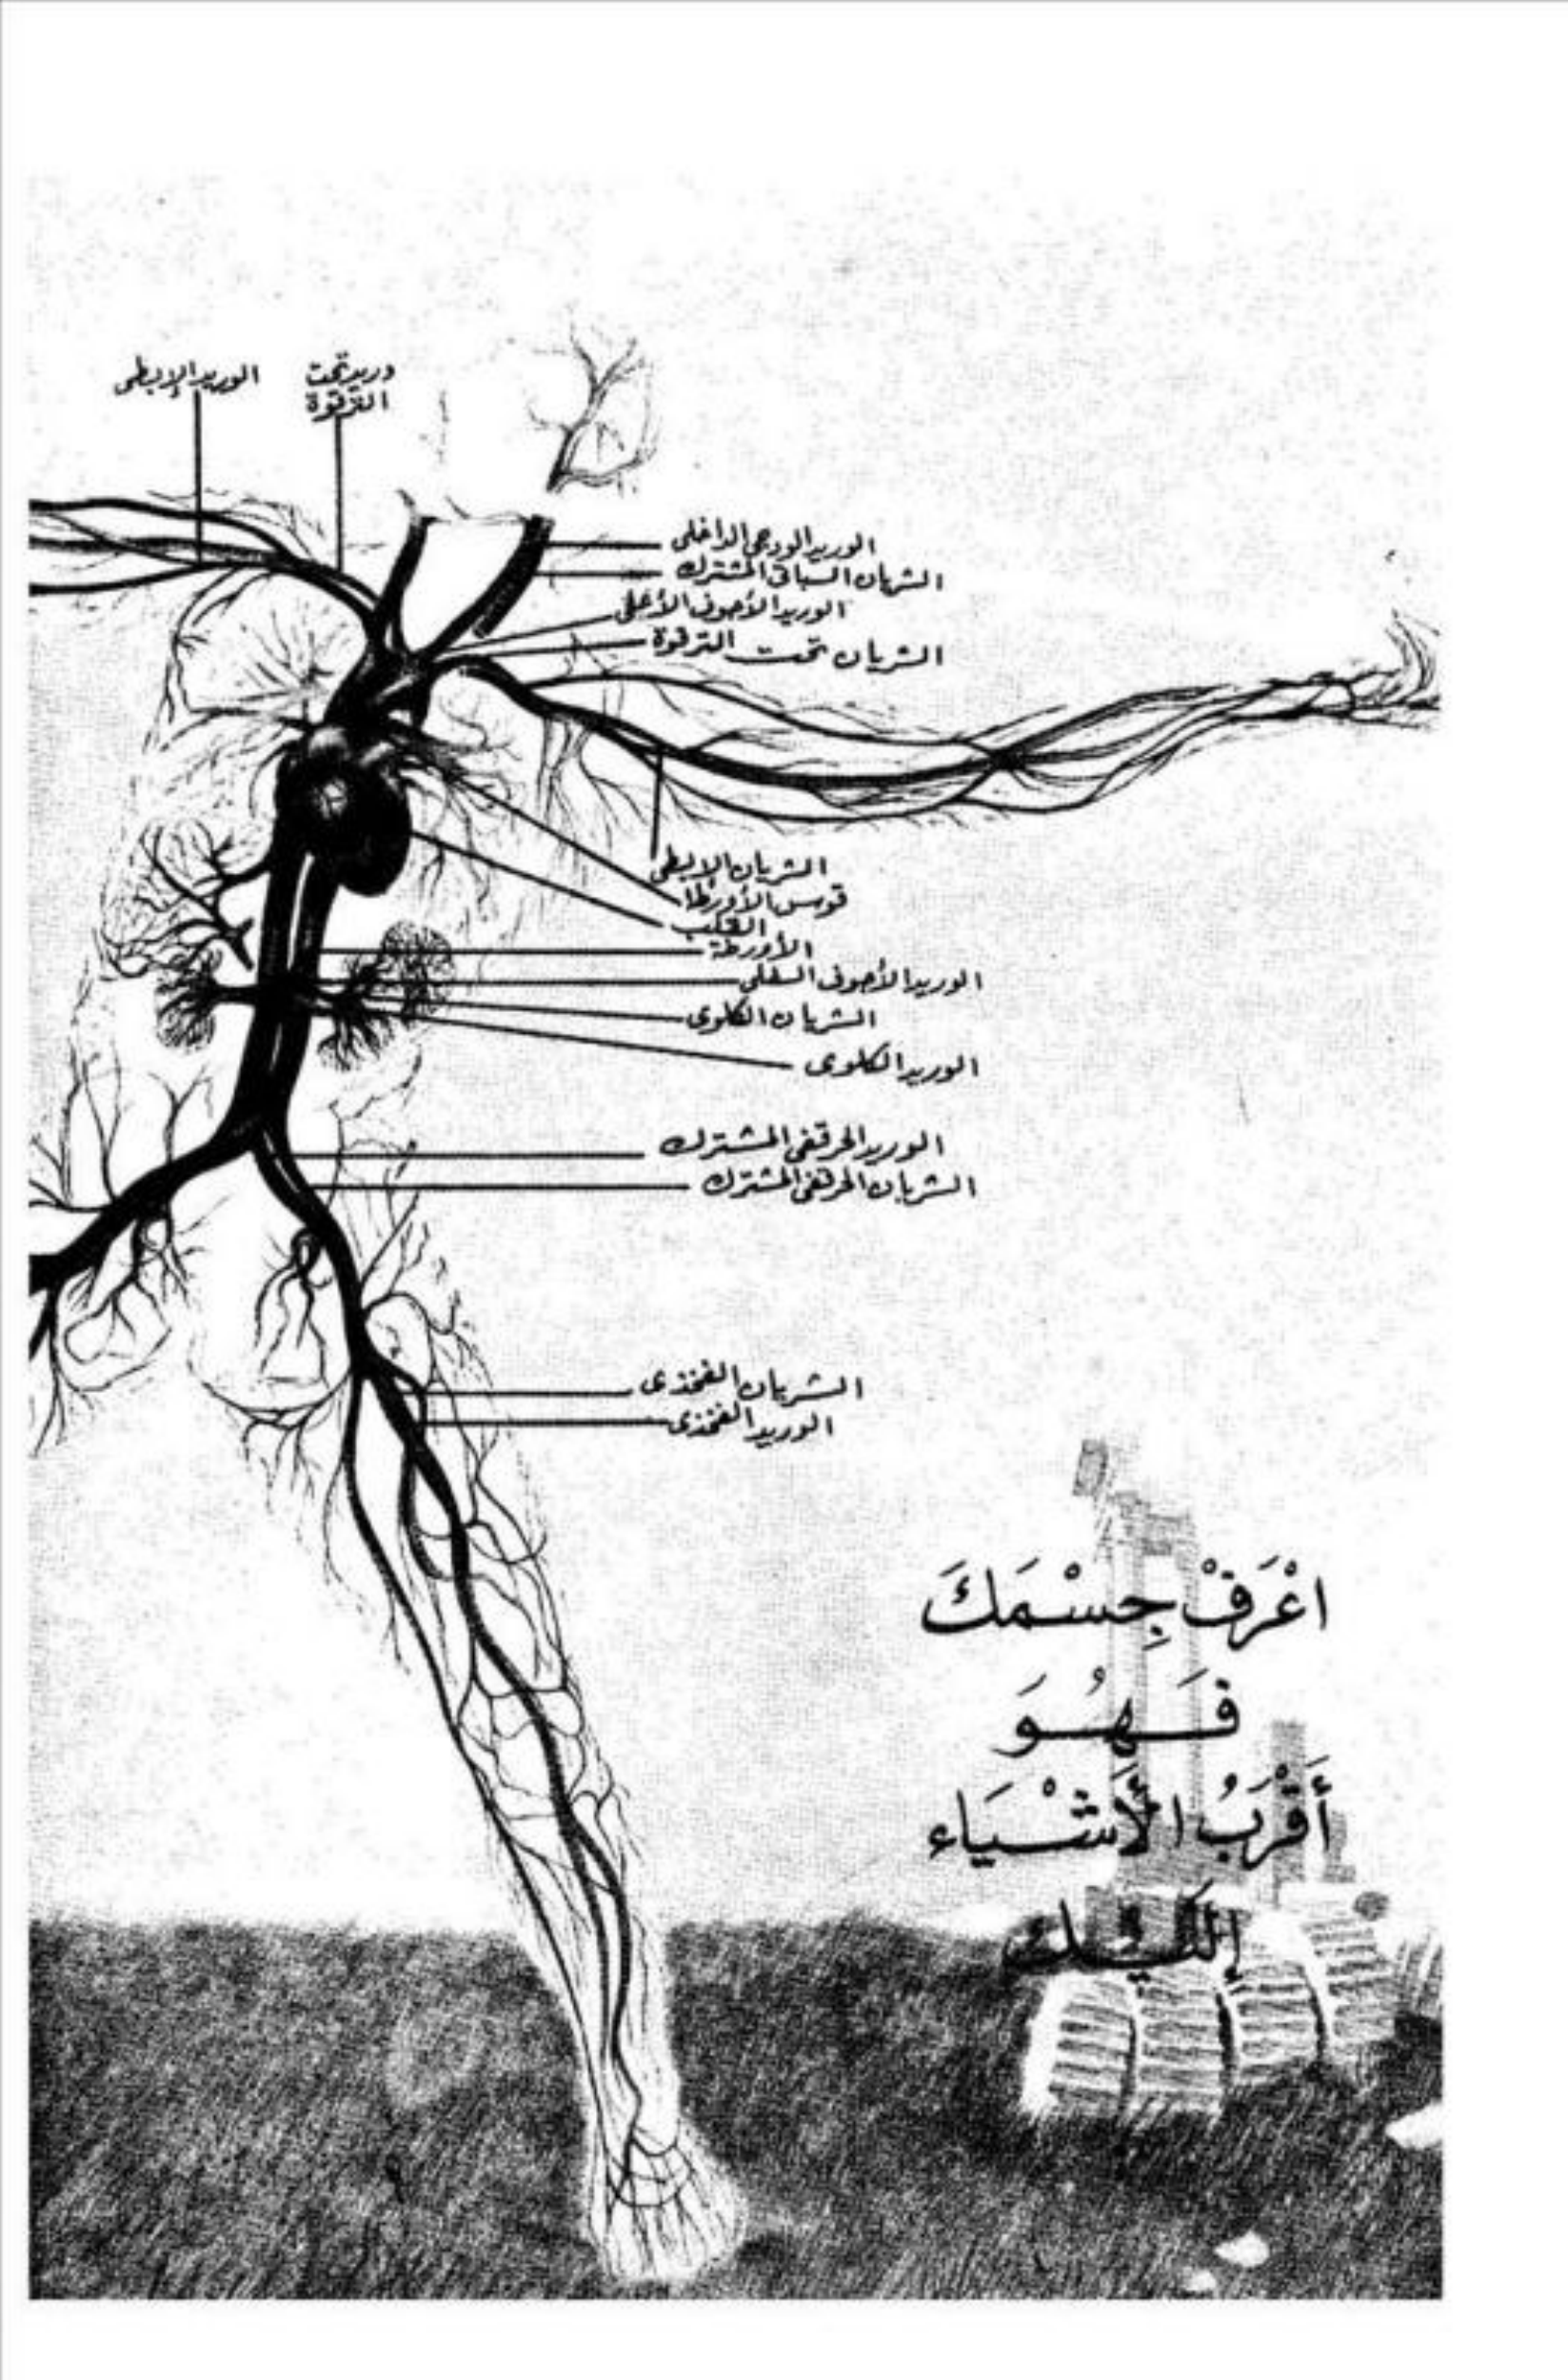 وريد تحت
الترقوة
الوريد الإبطى
الوريد الودجى الداخلى
الشريان السباتى المشترك
الوريد الأجوف الأعلى
الشريان تحت الترقوة
الشريان الإبطى
قوس الأورطا
القلب
الأورطة
الوريد الأجوف السفلى
الشريان الكلوى
الوريد الكلوى
الوريد الحرقفى المشترك
الشريان الحرقفى المشترك
الشريان الفخذى
الوريد الفخذى
اعْرَفْ جِسْمَكَ
فَهُوَ
أَقْرَبُ الأَشْيَاء
إلَيْك